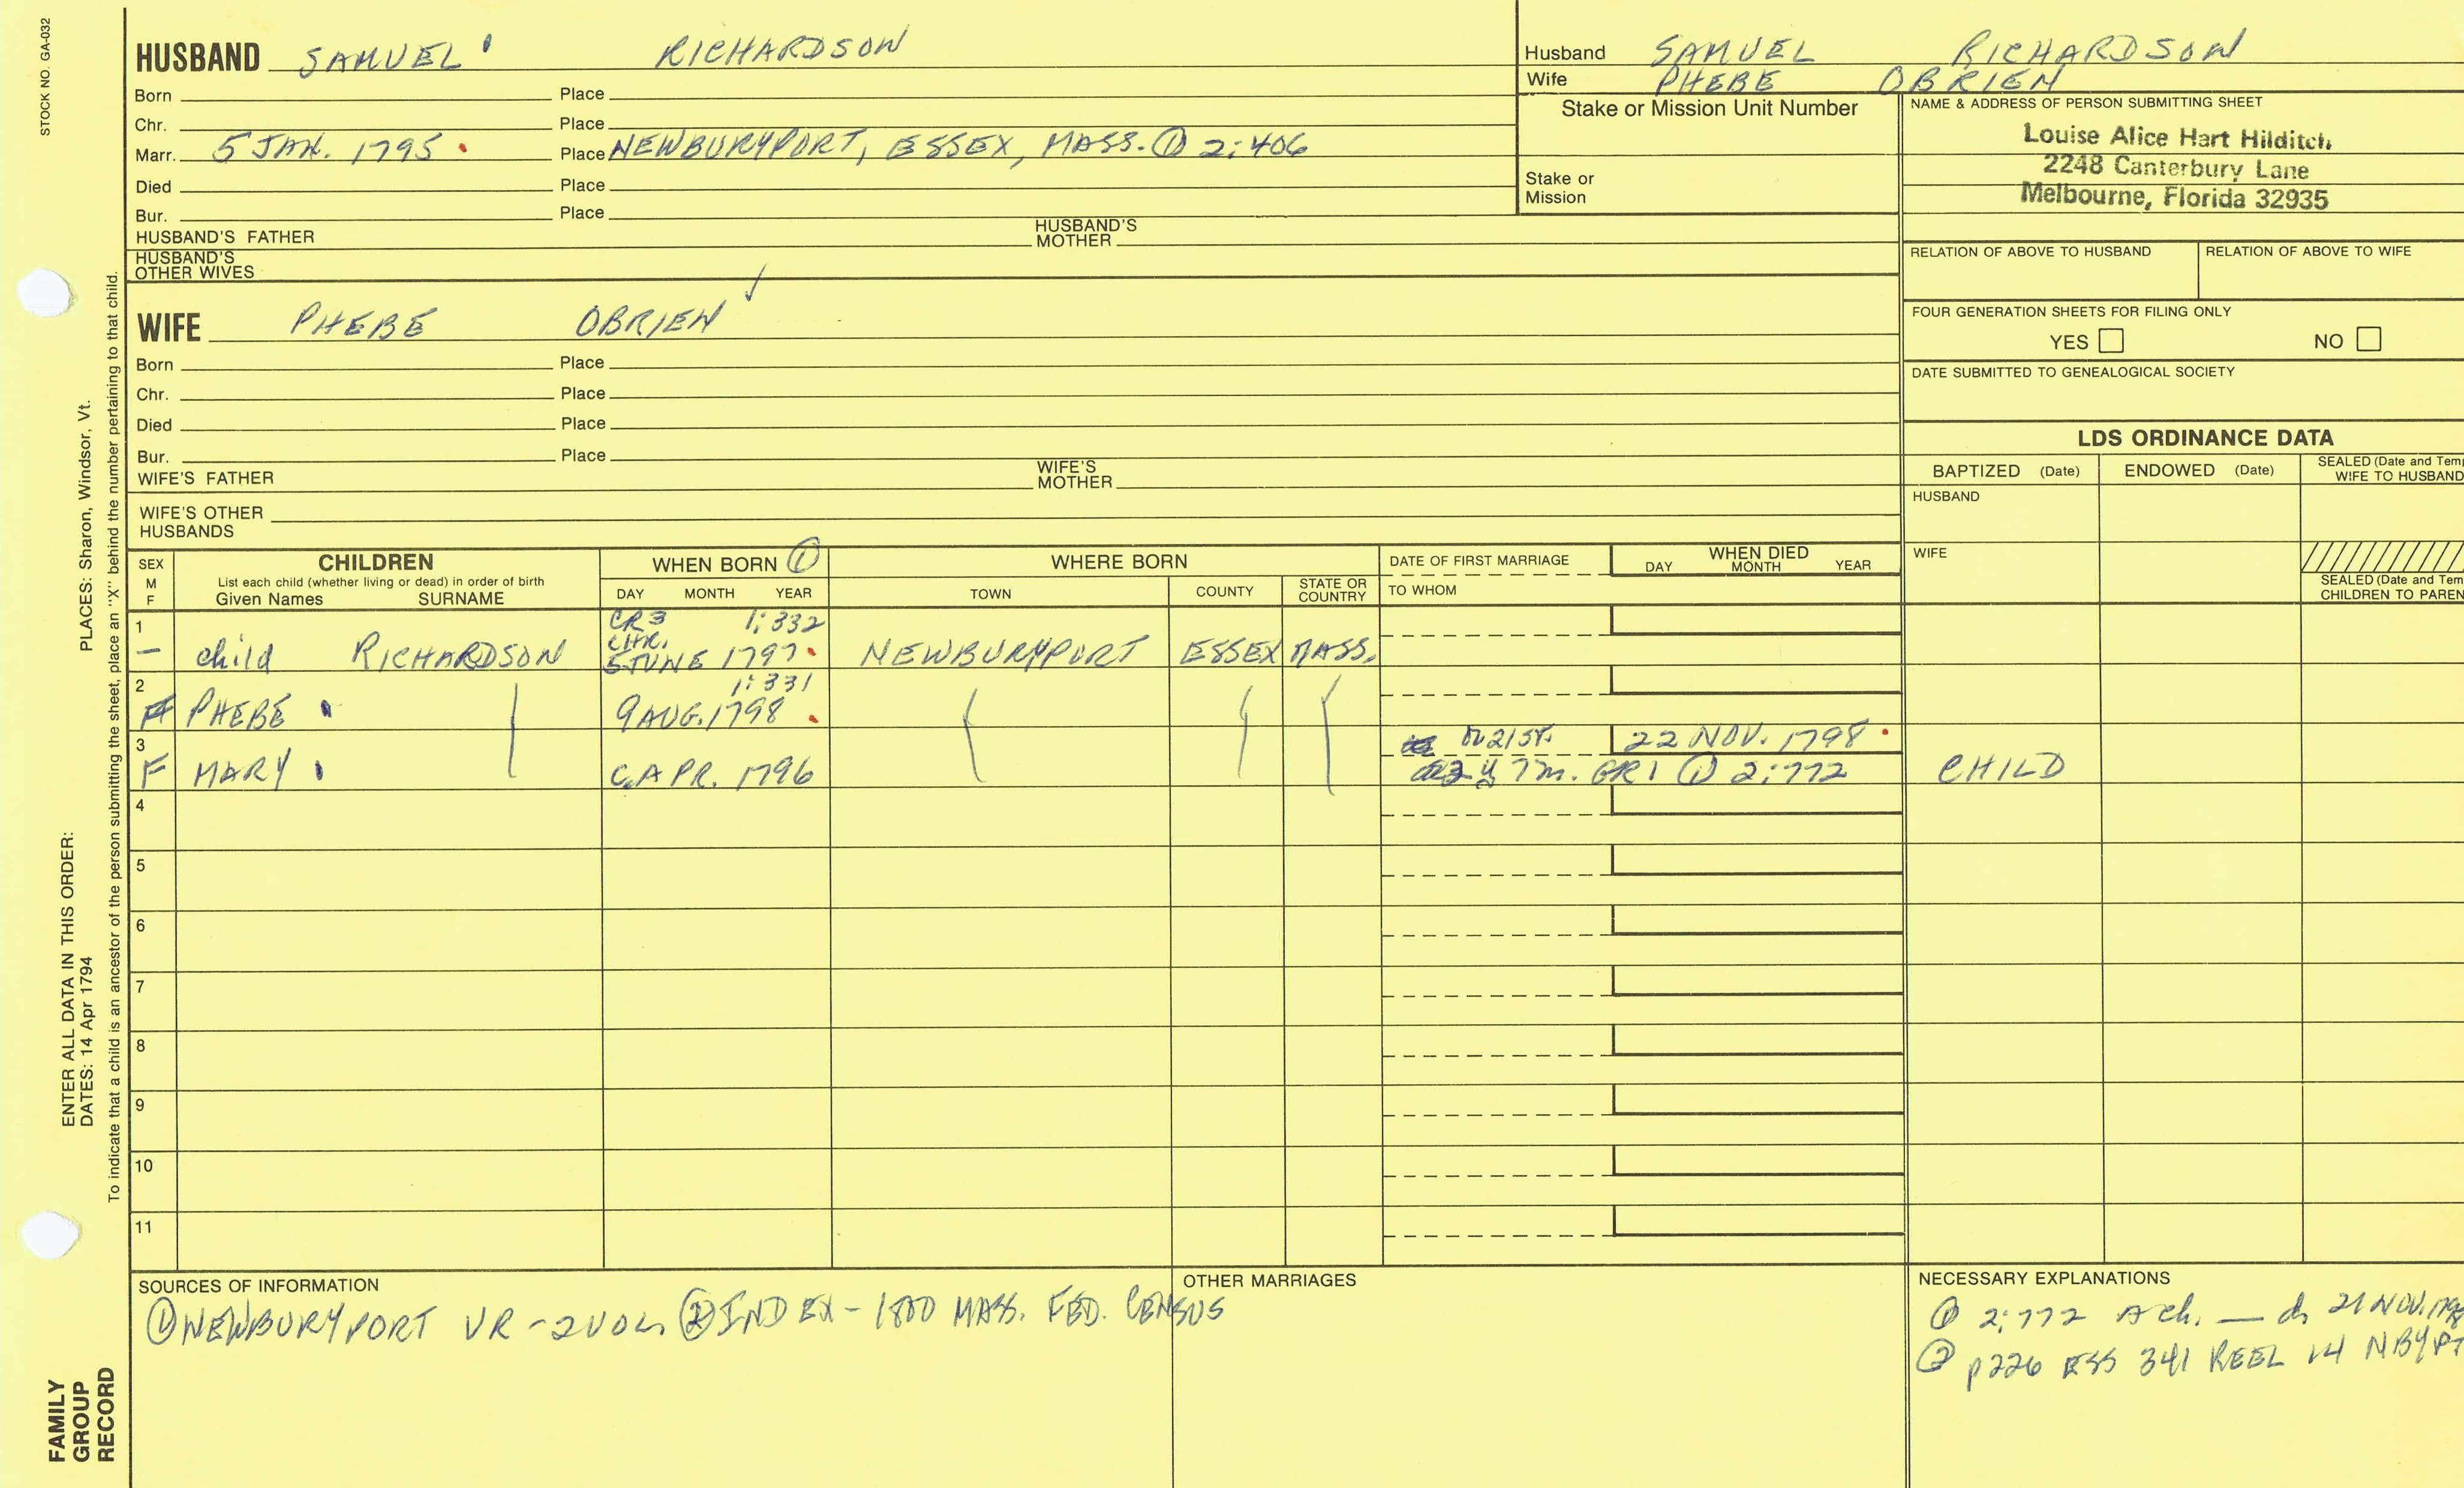 STOCK NO. GA-032
HUSBAND SAMUEL RICHARDSON
Born Place
Chr. Place
Marr. 5 JAN. 1795 Place NEWBURYPORT, ESSEX, MASS. ① 2:406
Died Place
Bur. Place
HUSBAND'S FATHER HUSBAND'S MOTHER
HUSBAND'S OTHER WIVES
WIFE PHEBE OBRIEN ✓
Born Place
Chr. Place
Died Place
Bur. Place
WIFE'S FATHER WIFE'S MOTHER
WIFE'S OTHER HUSBANDS
Husband SAMUEL RICHARDSON
Wife PHEBE OBRIEN
Stake or Mission Unit Number
Stake or Mission
NAME & ADDRESS OF PERSON SUBMITTING SHEET
Louise Alice Hart Hilditch
2248 Canterbury Lane
Melbourne, Florida 32935
RELATION OF ABOVE TO HUSBAND RELATION OF ABOVE TO WIFE
FOUR GENERATION SHEETS FOR FILING ONLY
YES NO
DATE SUBMITTED TO GENEALOGICAL SOCIETY
LDS ORDINANCE DATA
BAPTIZED (Date) ENDOWED (Date) SEALED (Date and Tem
WIFE TO HUSBAND
HUSBAND
WIFE
SEALED (Date and Tem
CHILDREN TO PAREN
SEX M F CHILDREN WHEN BORN ① WHERE BORN DATE OF FIRST MARRIAGE WHEN DIED
List each child (whether living or dead) in order of birth
Given Names SURNAME DAY MONTH YEAR TOWN COUNTY STATE OR COUNTRY TO WHOM DAY MONTH YEAR
1 CR3 1:332
CHR.
— child RICHARDSON 5 JUNE 1797 NEWBURYPORT ESSEX MASS.
2 1:331
F PHEBE 9 AUG. 1798
3 22 NOV. 1798
F MARY C.APR. 1796 7m. GR1 ① 2:772 CHILD
4
5
6
7
8
9
10
11
SOURCES OF INFORMATION
① NEWBURYPORT VR - 2 VOL. ② INDEX - 1800 MASS. FED. CENSUS
OTHER MARRIAGES
NECESSARY EXPLANATIONS
① 2:772 A ch. — d. 21 NOV. 1798
② p226 ESS 341 REEL 14 NBYPT
PLACES: Sharon, Windsor, Vt.
To indicate that a child is an ancestor of the person submitting the sheet, place an "X" behind the number pertaining to that child.
ENTER ALL DATA IN THIS ORDER:
DATES: 14 Apr 1794
FAMILY
GROUP
RECORD